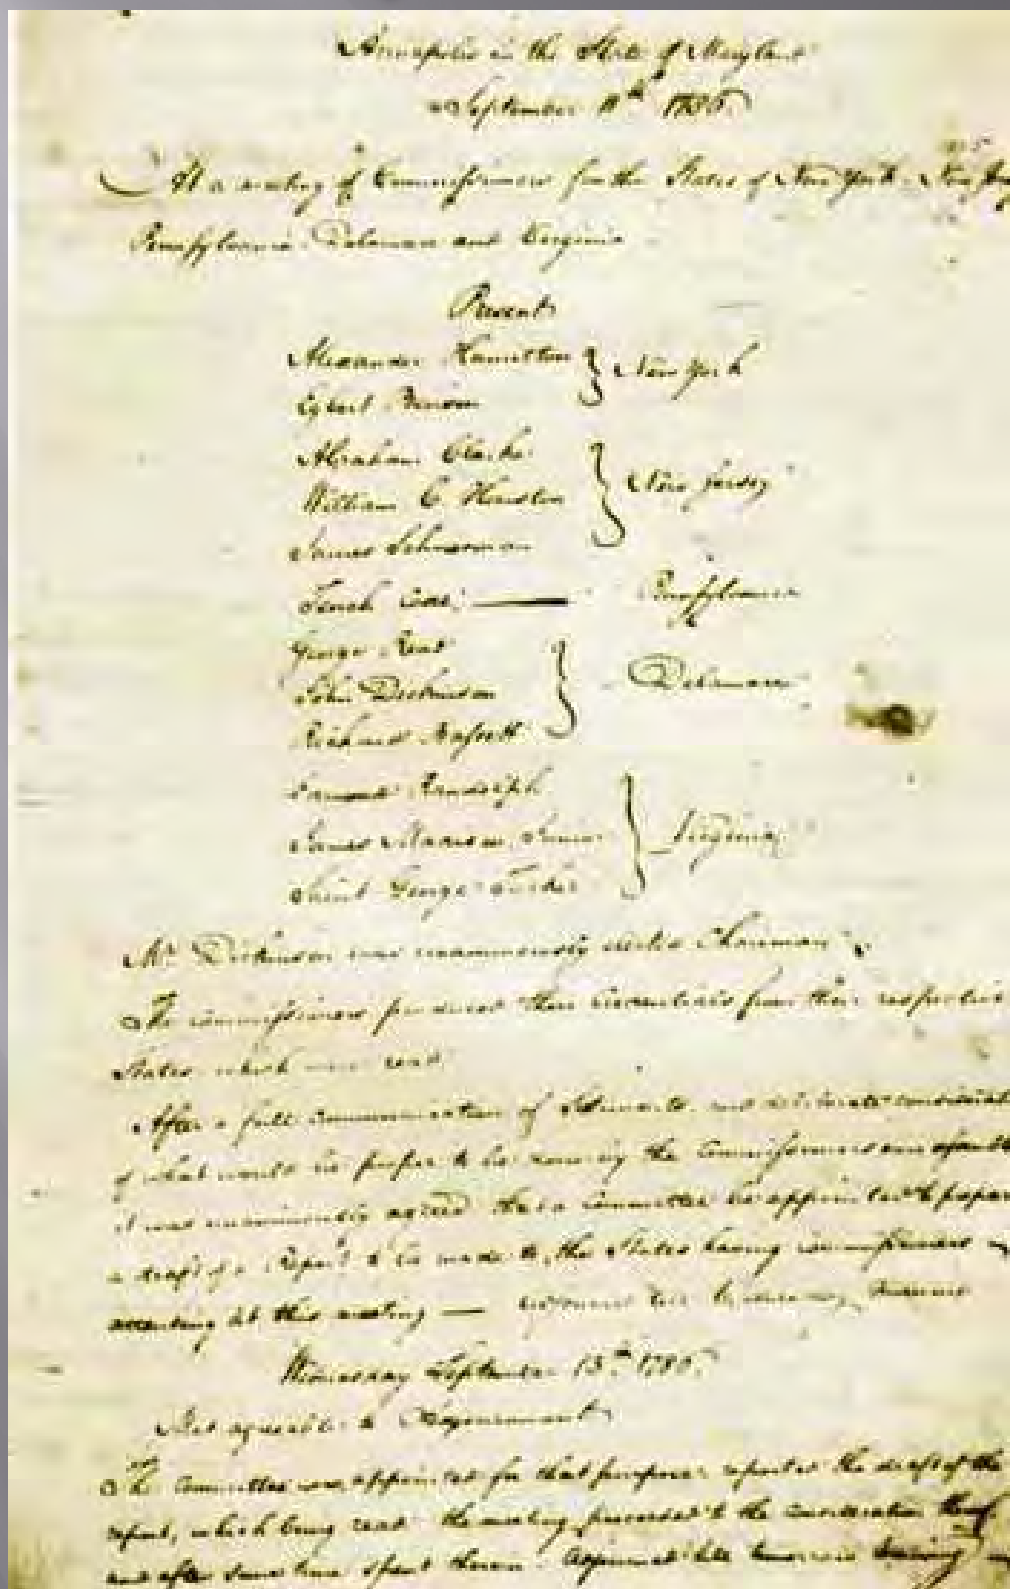 Annapolis in the State of Maryland
September 11th 1786
At a meeting of Commissioners from the States of New York, New
Pennsylvania, Delaware and Virginia
Present
Alexander Hamilton } New York
Egbert Benson
Abraham Clarke
William C Houston } New Jersey
James Schureman
Tench Coxe — Pennsylvania
George Read
John Dickinson } Delaware
Richard Bassett
Edmund Randolph
James Madison, Junior } Virginia
Saint George Tucker
Mr Dickinson was unanimously elected Chairman
The Commissioners produced their Credentials from their respective
States which were read
After a full communication of Sentiments, and deliberate
of what would be proper to be done by the Commissioners now
it was unanimously agreed that a Committee be appointed to prepare
a draft of a Report to be made to the States having Commissioners
attending at this meeting —
Wednesday September 13th 1786
Met agreeable to Adjournment
The Committee appointed for that purpose reported the draft of the
report, which being read the meeting proceeded to the consideration thereof
and after some time spent therein Adjourned till tomorrow